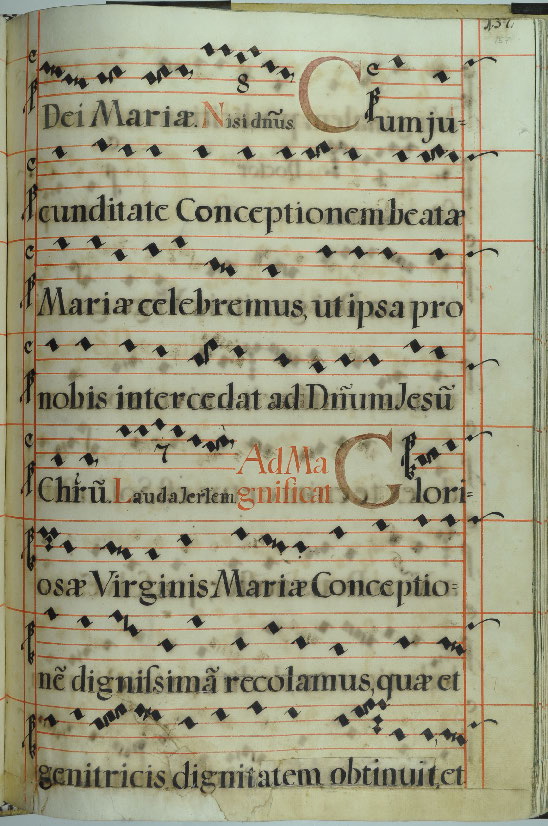 157
8
Dei Mariæ. Nisi dñus Cum ju-
cunditate Conceptionem beatæ
Mariæ celebremus, ut ipsa pro
nobis intercedat ad Dñum Jesū
7
Chr̄ū. Lauda Jerlem Ad Magnificat Glori-
osæ Virginis Mariæ Conceptio-
nē dignissimā recolamus, quæ et
genitricis dignitatem obtinuit, et